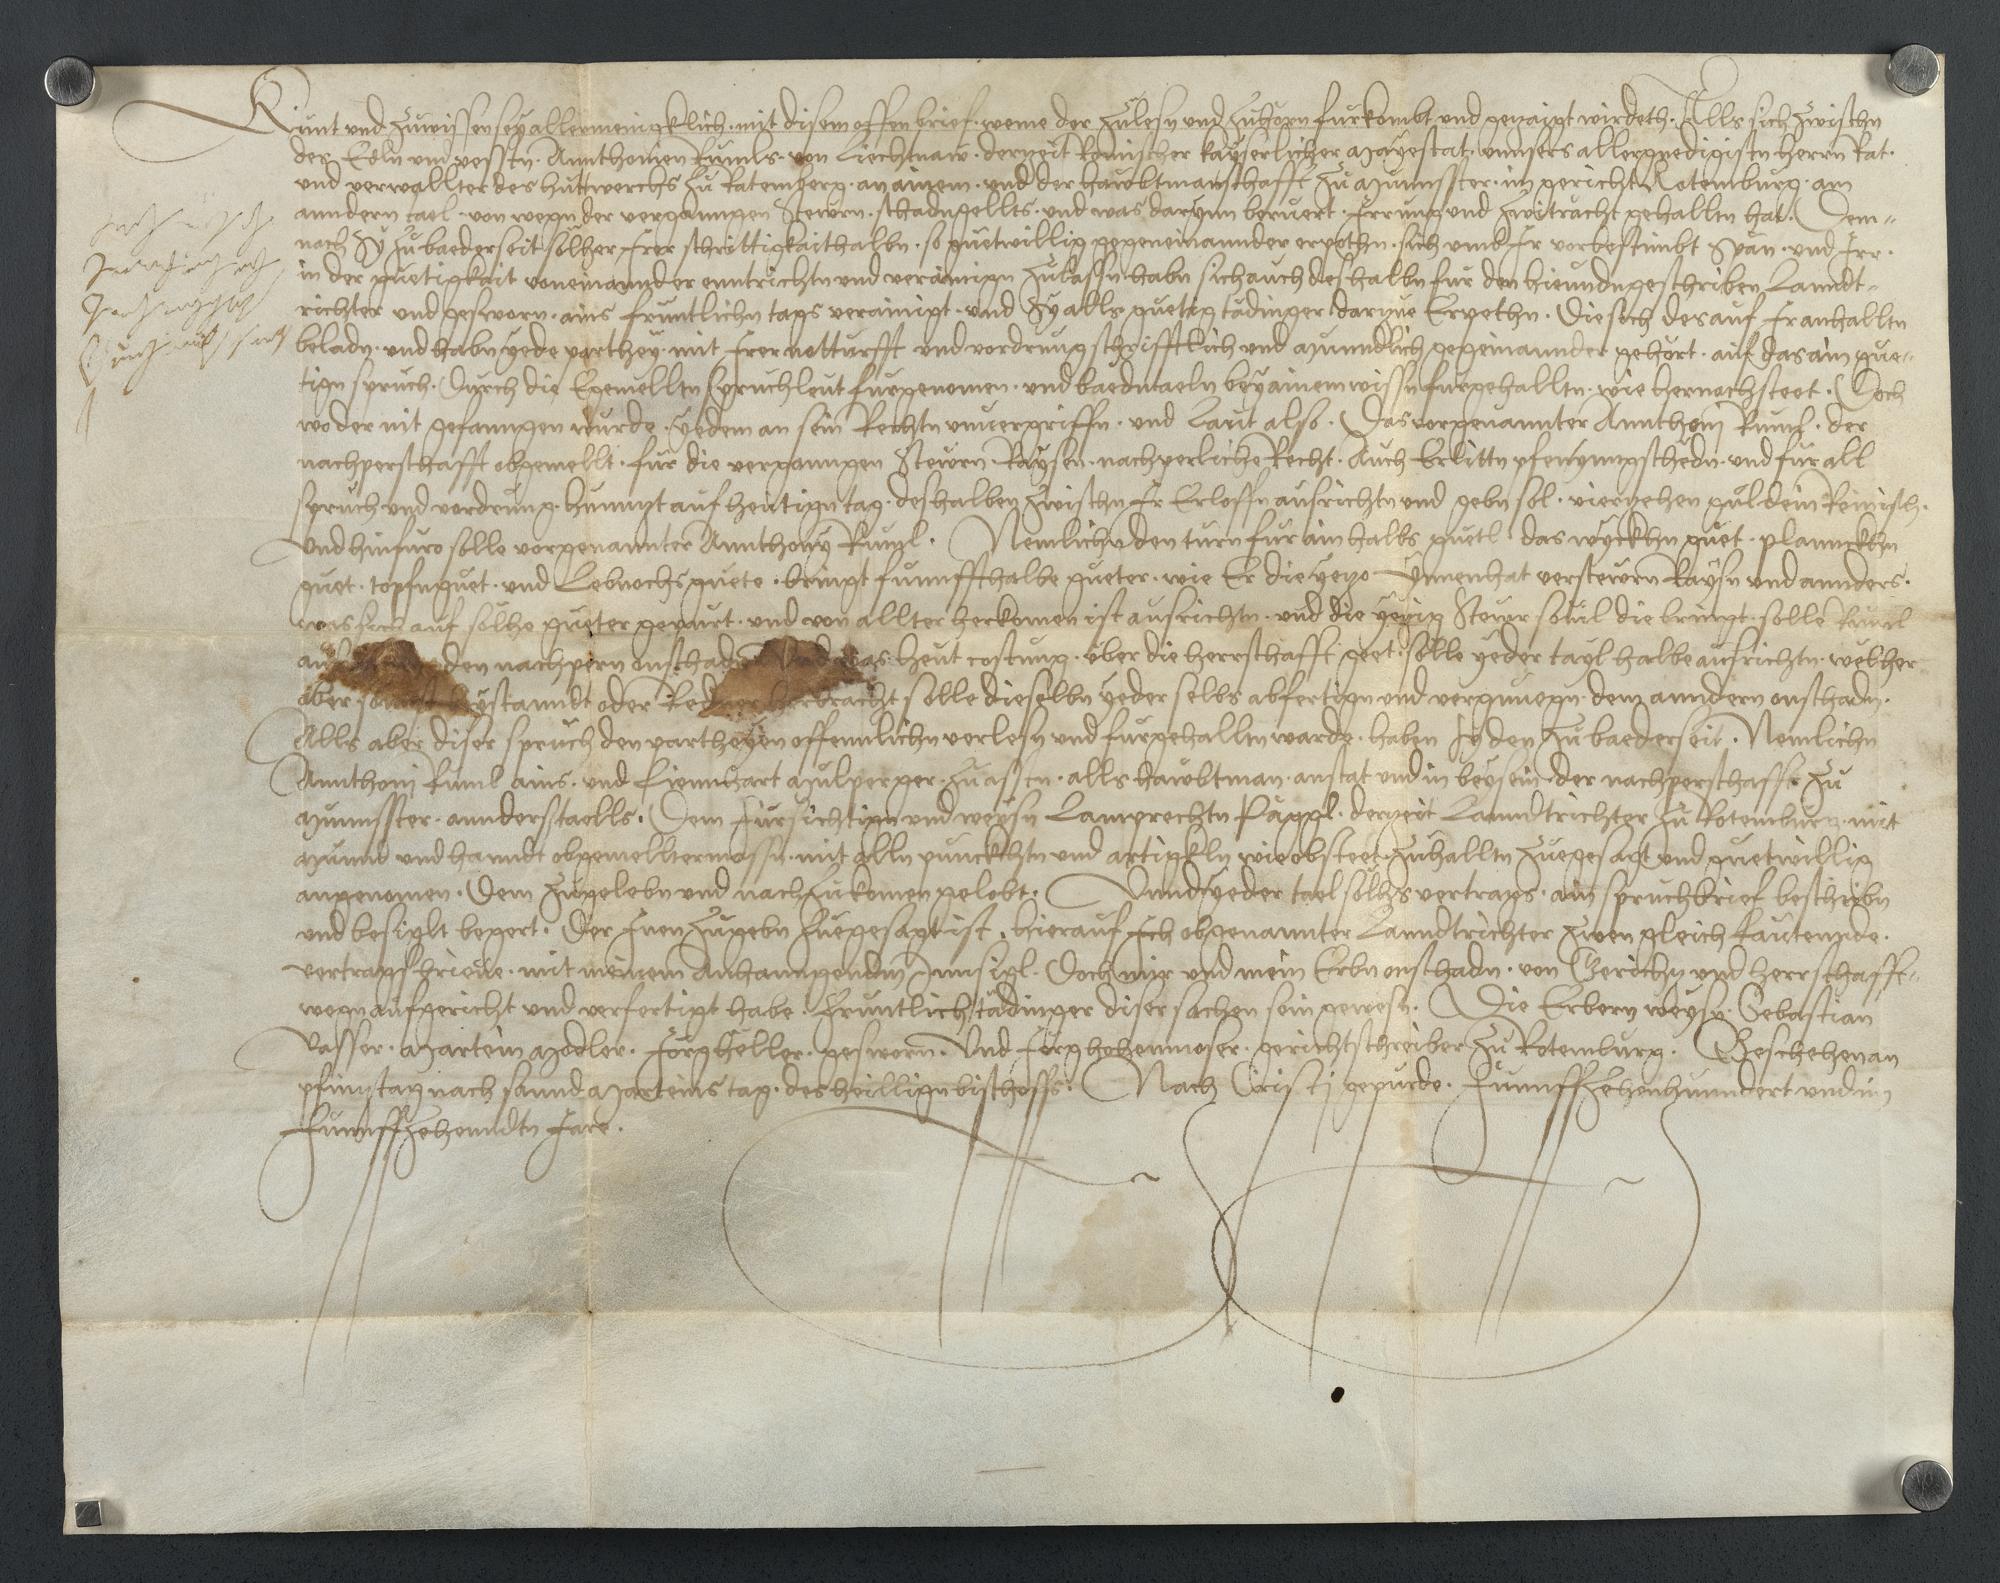 Kunt und zuwissen sey allermenigklich mit disem offen brief weme der zulesn und zuhorn furkombt und gezaigt wirdeth. Alls sich zwischn
des Edln und vesstn Annthonien Ruml von Liechtnaw derzeit Romischer kayserlicher Mayestat unnsers allergnedigistn herrn Rat
und verwallter des huttwerchs zu Ratemberg an ainem und der hawbtmanschafft zu Munsster im gericht Rotemburg am
anndern tael von wegn der verganngen Stewrn schadngellts und was darynn beruert Irrung und zwitracht gehalltn hat. Dem-
nach Sy zu baederseit solher Irer schrittigkaithalbn so guetwillig gegeneinannder erpothn sich umb Ir vorbestimbt Spän und Irr
in der guetigkait voneinannder enntrichtn und verainign zulassn habn sich auch deshalbn fur den hieundngeschriben Lanndt-
richter und gesworn ains fruntlichn tags verainigt und Sy alls guetig tädinger darzue Erpethn. Die sich des auf Ir anhalltn
beladn und habn yede parthey mit Irer notturfft und vordrung schrifftlich und munndlich gegeneinannder gehört auf das ain gue-
tign spruch Durch die Egemelltn spruchleut furgenomen und baedntaeln bey ainem wissn furgehalltn wie hernachsteet. Doch
wo der nit gefanngen wurde yedem an sein Rechtn unvergriffn und Laut also. Das vorgenannter Annthoni Ruml der
nachperschafft obgemellt fur die verganngen Stewrn Raysen nachperliche Recht Auch Erlittn pfennyngschedn und fur all
spruch und vordrung hunnzt auf heutign tag deshalben zwischn Ir Erloffn ausrichtn und gebn sol vierzehen guldein Reinisch
Und hinfuro solle vorgenannter Annthony Ruml Nemlichn den turn fur ain halbs guetl das wyckhn guet planckhn
guet topfnguet und Lebnochs guete bringt funnffthalbe gueter wie Er die yezo Innen hat verstewrn Raysn und annders
was sich auf solhe gueter gepurt und von allter herkomen ist ausrichtn und die yezig Stewr souil die bringt solle Ruml
den nachpern onschadn Und was heut costung uber die herrschafft geet solle yeder tayl halbe ausrichtn welher
aber sonnst beystannd oder Redner herbracht solle dieselbn yeder selbs abfertign und vergnuegn dem anndern onschadn
Alls aber diser spruch den partheyen offennlichn verlesn und furgehalltn warde haben sy den zu baederseit Nemlichn
Annthoni Ruml ains und Liennhart Mulperger zu assen alls hawbtman anstat und in beysein der nachperschafft zu
Munsster annderstaells Dem fursichtign und weysn Lamprechtn Päppl derzeit Lanndtrichter zu Rotemburg mit
Munnd und hanndt obgemelltermassn mit alln punckhtn und artigkln wie obsteet zuhalltn zuegesagt und guetwillig
angenomen Dem zugelebn und nachzukomen gelobt. Unnd yeder tael solhs vertrags ain spruchbrief beschribn
und besiglt begert Der Inen zugebn zuegesagt ist hierauf Ich obgenannter Lanndtrichter zwen gleich lautennde
vertragsbrieve mit meinem Anhanngendn Innsigl Doch mir und mein Erbn onschadn von Gerichz und herrschafft-
wegn aufgericht und verfertigt habe Fruntlich tädinger diser sachen sein gewesn Die Erbern weysn Sebastian
Vasser Martein Modler Jörg Heller gesworn Und Jörg hohenmoser gerichtschreiber zu Rotemburg. Geschehen an
pfinnztag nach sannd Marteins tag des heilligen bischoffs. Nach Cristi gepurde Funnffzehenhunndert und im
Funnffzehenndtn Jare.